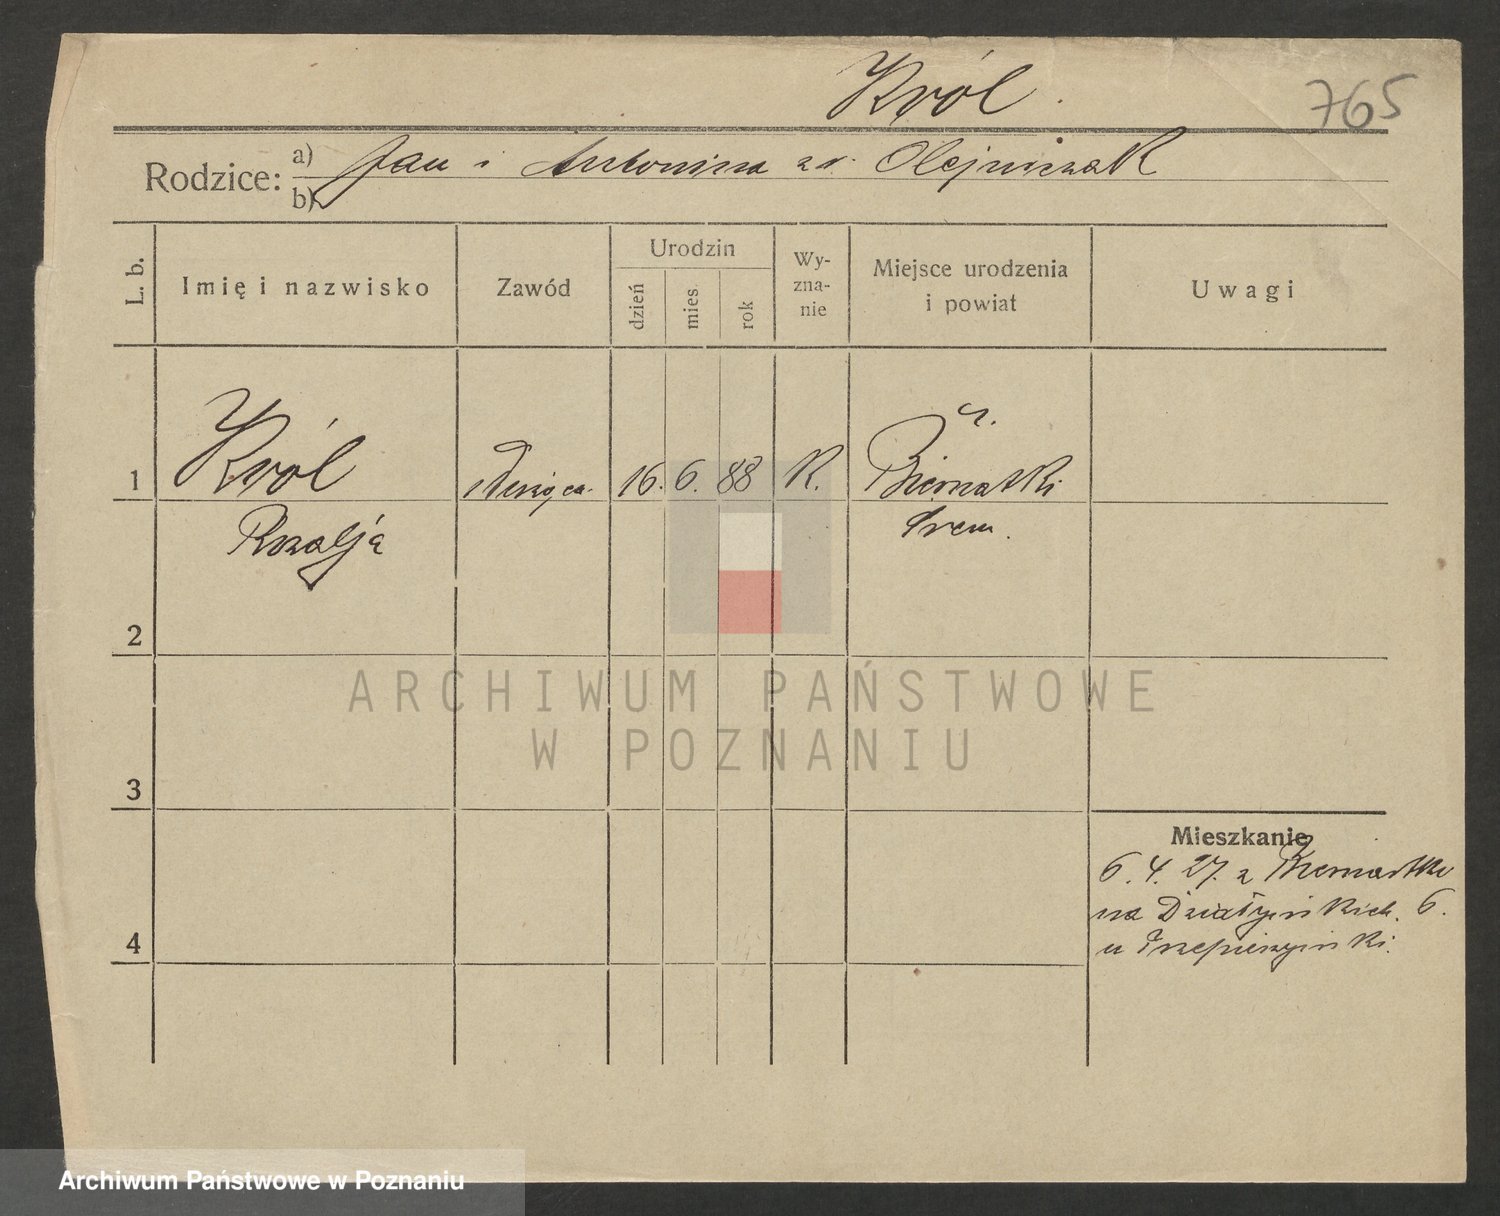 Król
765
Rodzice: a) Jan i Antonina zd. Olejniczak
b)
L. b.
Imię i nazwisko
Zawód
Urodzin
dzień
mies.
rok
Wy-
zna-
nie
Miejsce urodzenia
i powiat
Uwagi
1
Król
służąca
16. 6. 88
K.
Biernatki
Rozalja
Śrem.
2
ARCHIWUM PAŃSTWOWE
W POZNANIU
3
Mieszkanie
6. 4. 27. z Biernatki
na Działyńskich. 6.
4
Archiwum Państwowe w Poznaniu